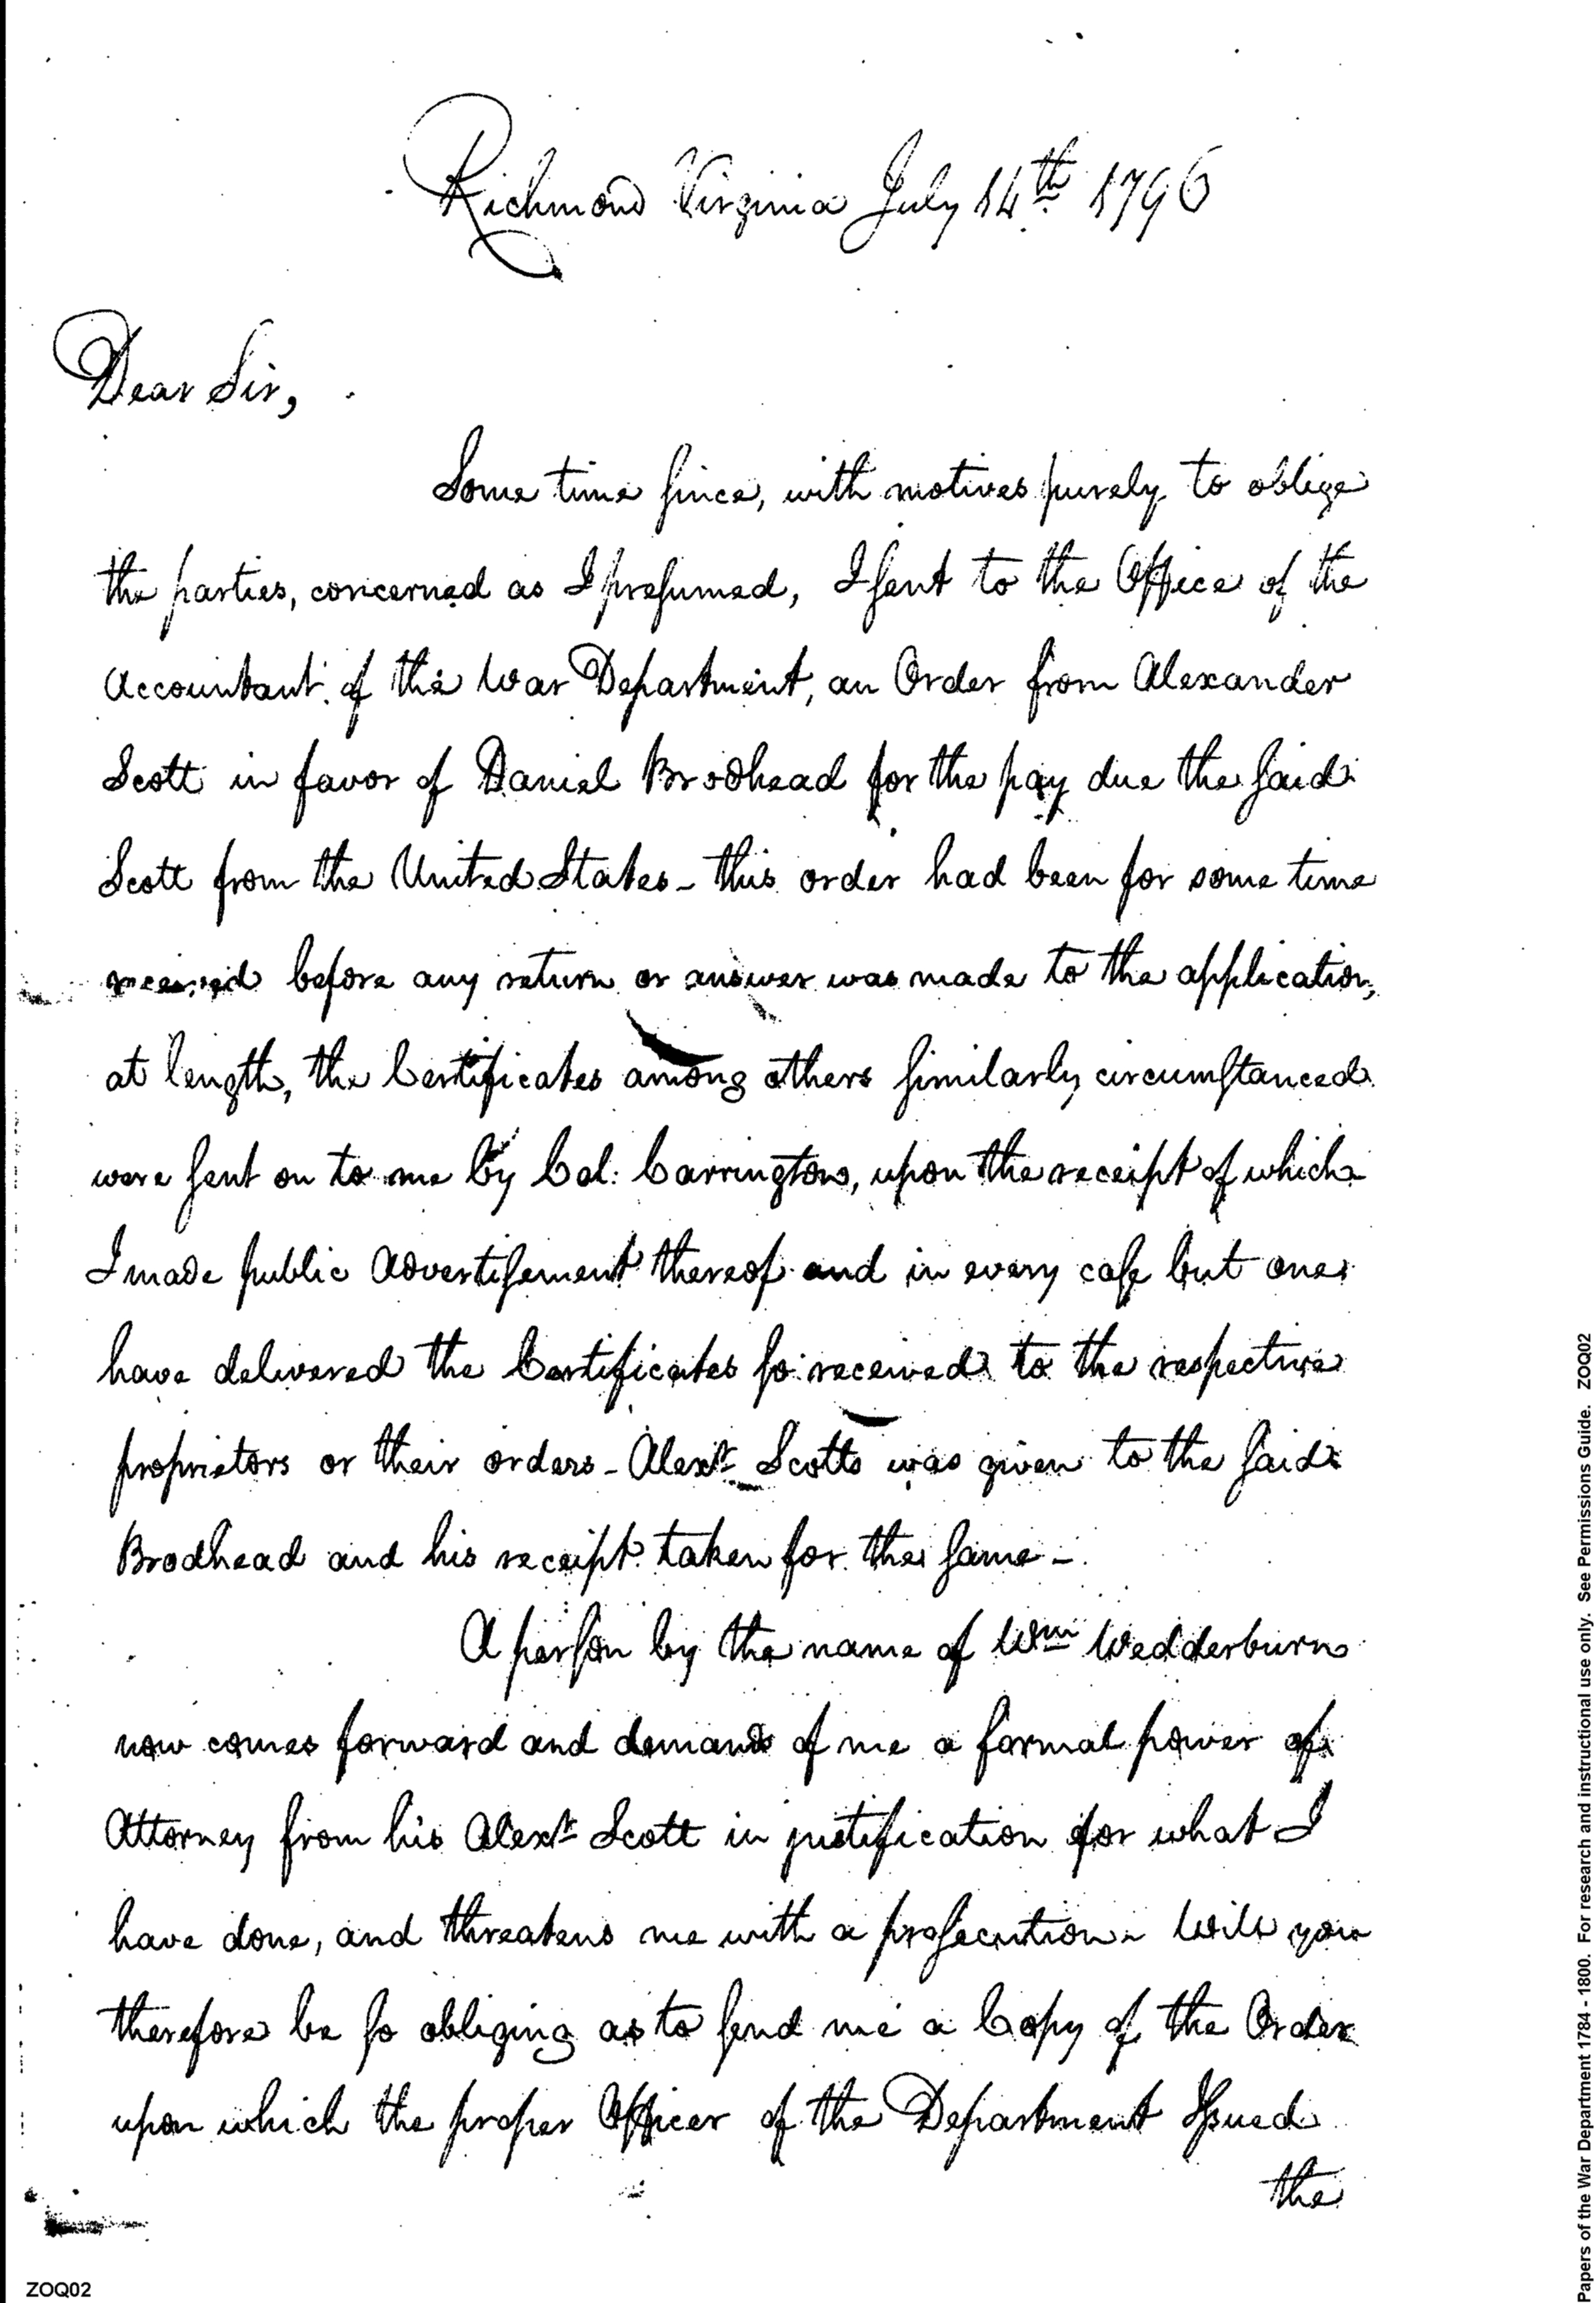 Richmond Virginia July 14th 1796
Dear Sir,
Some time since, with motives purely to oblige
the parties, concerned as I presumed, I sent to the Office of the
Accountant of the War Department, an Order from Alexander
Scott in favor of Daniel Brodhead for the pay due the said
Scott from the United States - this order had been for some time
received before any return or answer was made to the application,
at length, the Certificates among others similarly circumstanced
were sent on to me by Col: Carrington, upon the receipt of which
I made public Advertisement thereof and in every case but one
have delivered the Certificates so received to the respective
proprietors or their orders - Alexr Scotts was given to the said
Brodhead and his receipt taken for the same -
A person by the name of Wm Wedderburn
now comes forward and demands of me a formal power of
Attorney from his Alexr Scott in justification for what I
have done, and threatens me with a prosecution - Will you
therefore be so obliging as to send me a Copy of the Order
upon which the proper Officer of the Department Issued
the
ZOQ02
Papers of the War Department 1784 - 1800. For research and instructional use only. See Permissions Guide. ZOQ02